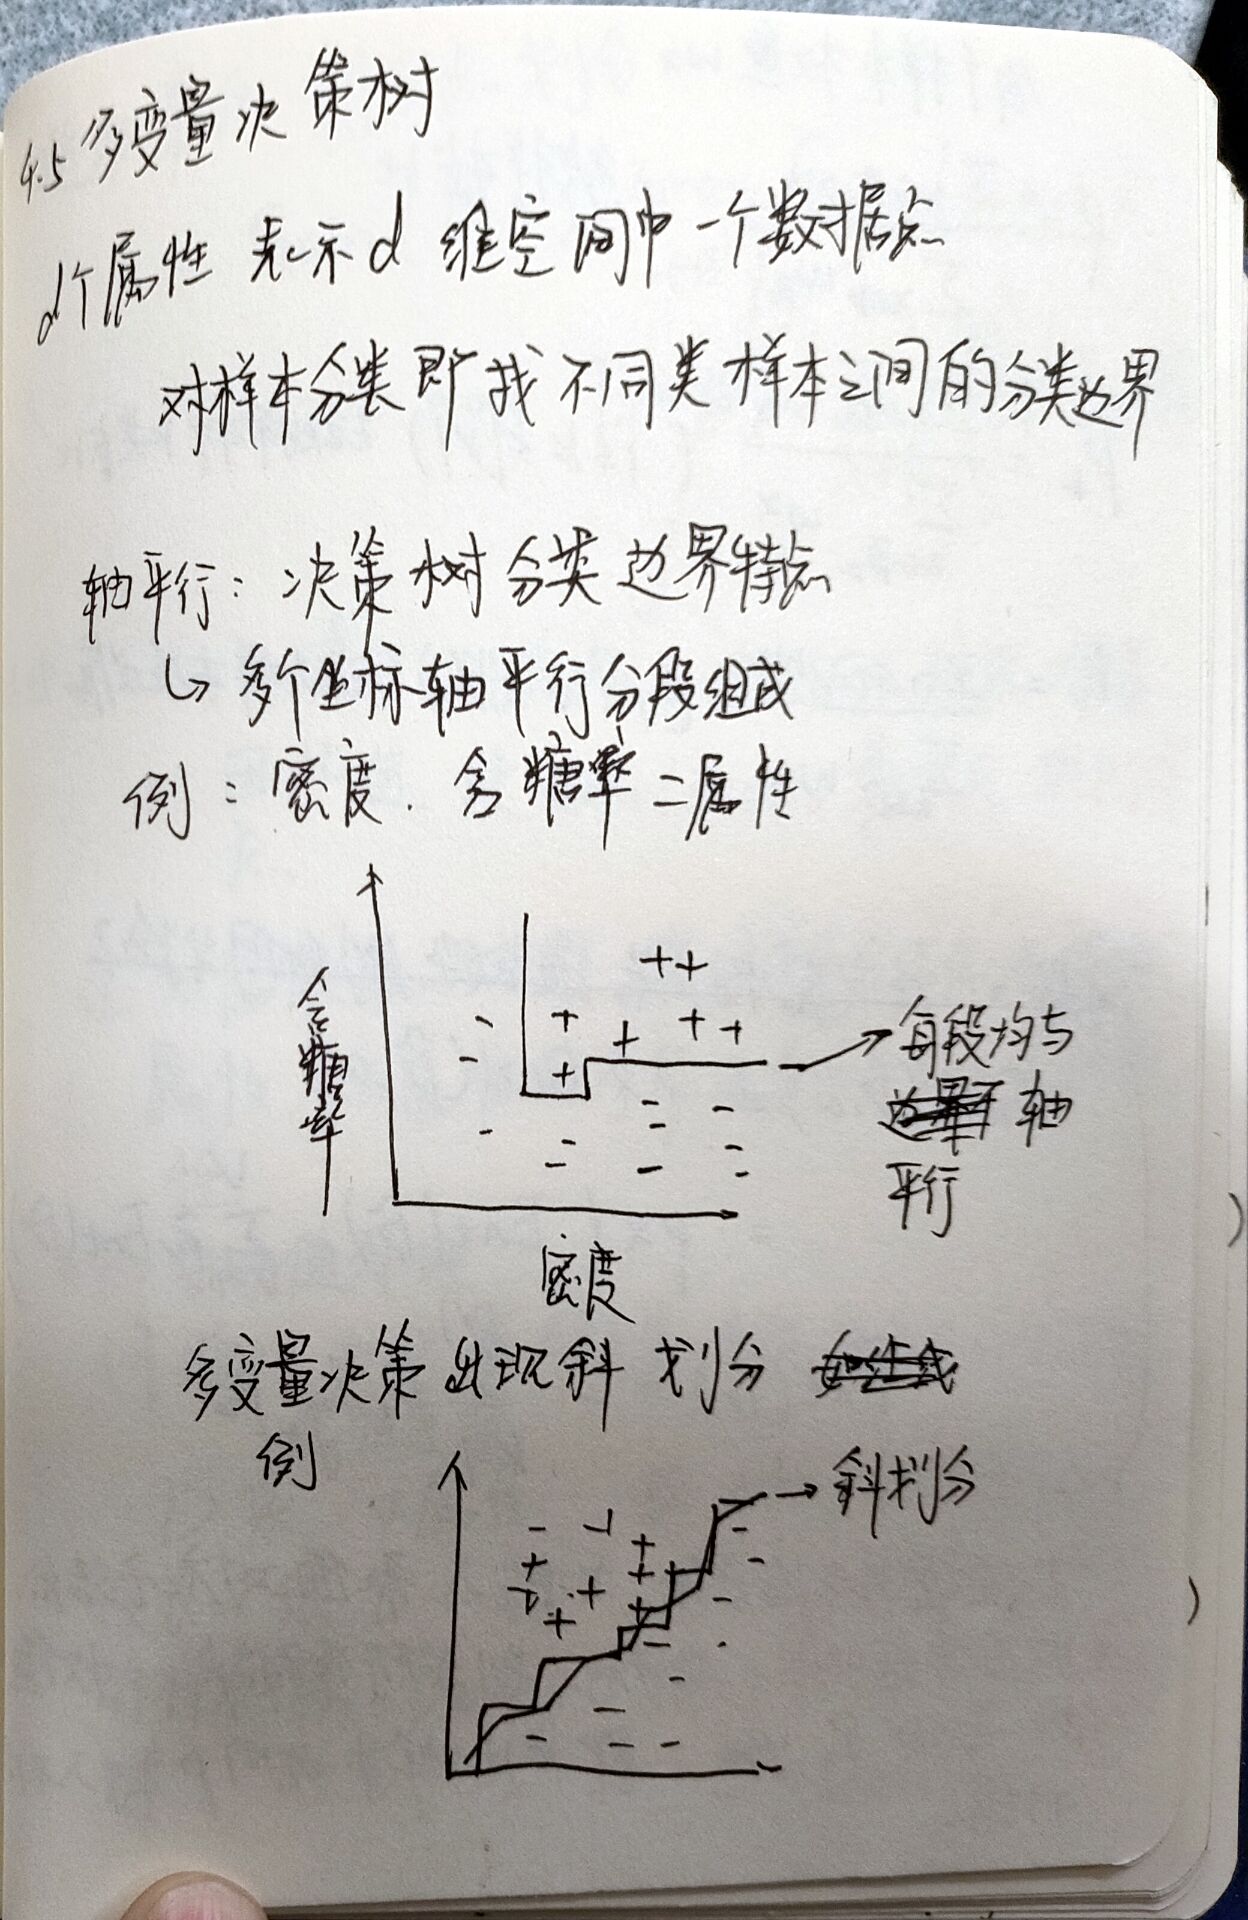 4.5 多变量决策树
d个属性 表示d 维空间中一个数据点
对样本分类即找不同类样本之间的分类边界
轴平行：决策树分类边界特点
↳ 多个坐标轴平行分段组成
例：密度、含糖率二属性
含糖率
每段均与
轴
平行
密度
多变量决策出现斜划分
例
斜划分